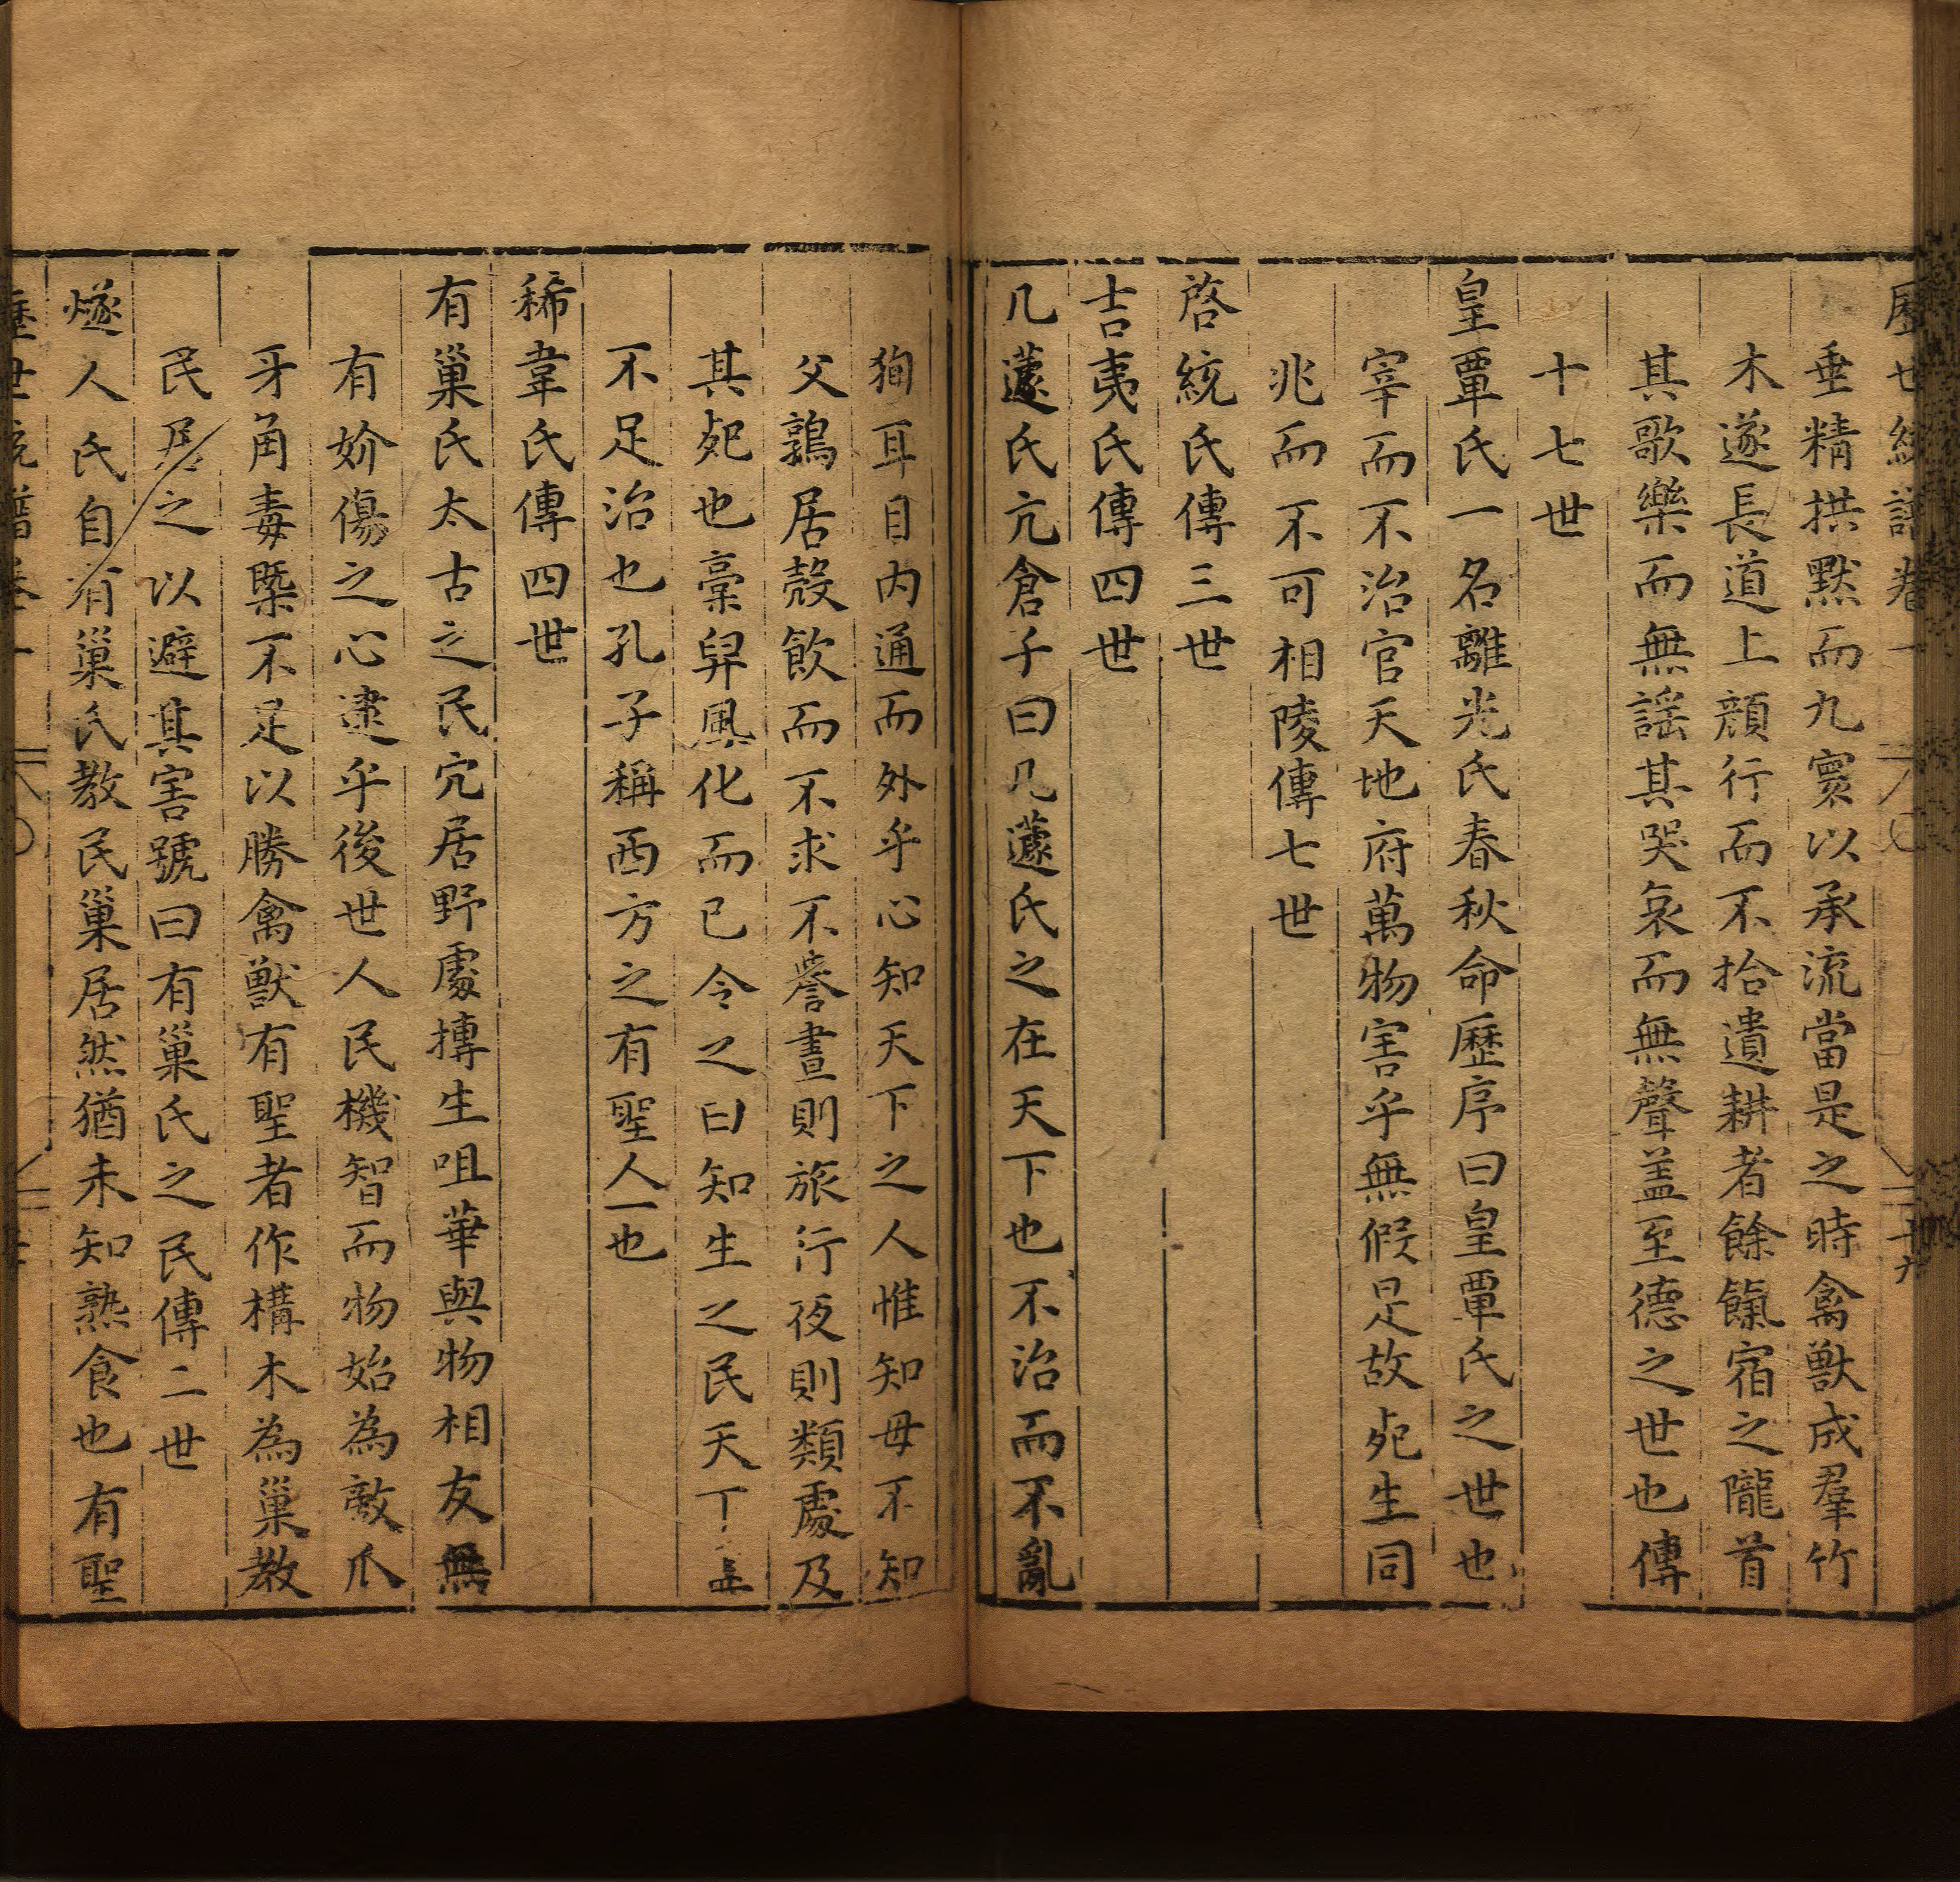 歷世統譜卷一 十九
垂精拱黙而九寰以承流當是之時禽獸成羣竹
木遂長道上顔行而不拾遺耕者餘餼宿之隴首
其歌樂而無謠其哭哀而無聲盖至德之世也傳
十七世
皇覃氏一名離光氏春秋命歷序曰皇覃氏之世也
宰而不治官天地府萬物害乎無假是故死生同
兆而不可相陵傳七世
啓統氏傳三世
吉夷氏傳四世
几蘧氏亢倉子曰几蘧氏之在天下也不治而不亂
狥耳目内通而外乎心知天下之人惟知母不知
父鶉居鷇飲而不求不譽晝則旅行夜則類處及
其死也槀舁風化而已令之曰知生之民天
不足治也孔子稱西方之有聖人一也
豨韋氏傳四世
有巢氏太古之民穴居野處摶生咀華與物相友無
有妎傷之心逮乎後世人民機智而物始為敵爪
牙角毒槩不足以勝禽獸有聖者作構木為巢教
民居之以避其害號曰有巢氏之民傳二世
燧人氏自有巢氏教民巢居然猶未知熟食也有聖
歷世統譜卷一